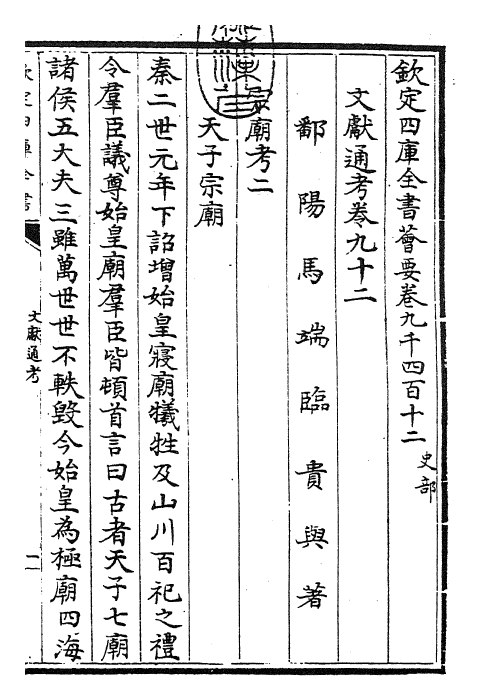 欽定四庫全書薈要卷九千四百十二 史部
文獻通考卷九十二
鄱陽馬端臨貴與著
宗廟考二
天子宗廟
秦二世元年下詔增始皇寢廟犧牲及山川百祀之禮
令羣臣議尊始皇廟羣臣皆頓首言曰古者天子七廟
諸侯五大夫三雖萬世世不軼毀今始皇為極廟四海
欽定四庫全書
文獻通考